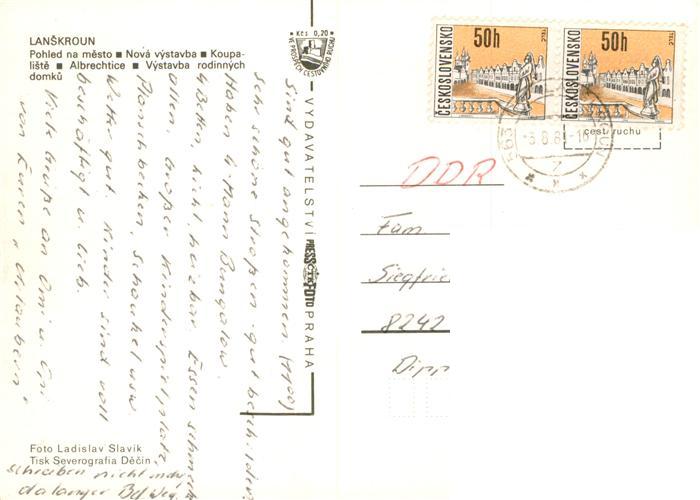 LANŠKROUN
Pohled na město ■ Nová výstavba ■ Koupa-
liště ■ Albrechtice ■ Výstavba rodinných
domků
Kčs 0,20
VE PROSPĚCH CESTOVNÍHO RUCHU
VYDAVATELSTVÍ PRESSFOTO PRAHA
Sind gut angekommen (1100)
sehr schöne Straßen - gut besch.
Haben 4-Mann Bungalow.
4 Betten, Licht, heizbar. Essen schmeckt
allen. Großer Kinderspielplatz
Planschbecken, Schaukel usw.
Wetter gut. Kinder sind voll
beschäftigt u. lieb.
Viele Grüße an Omi u. Opi
von Euren "Urlaubern"
schreiben nicht
da langer
Foto Ladislav Slavík
Tisk Severografia Děčín
ČESKOSLOVENSKO
50h
TELČ
ČESKOSLOVENSKO
50h
TELČ
563
cest. ruchu
DDR
Fam
Siegfrie
8242
Dipp